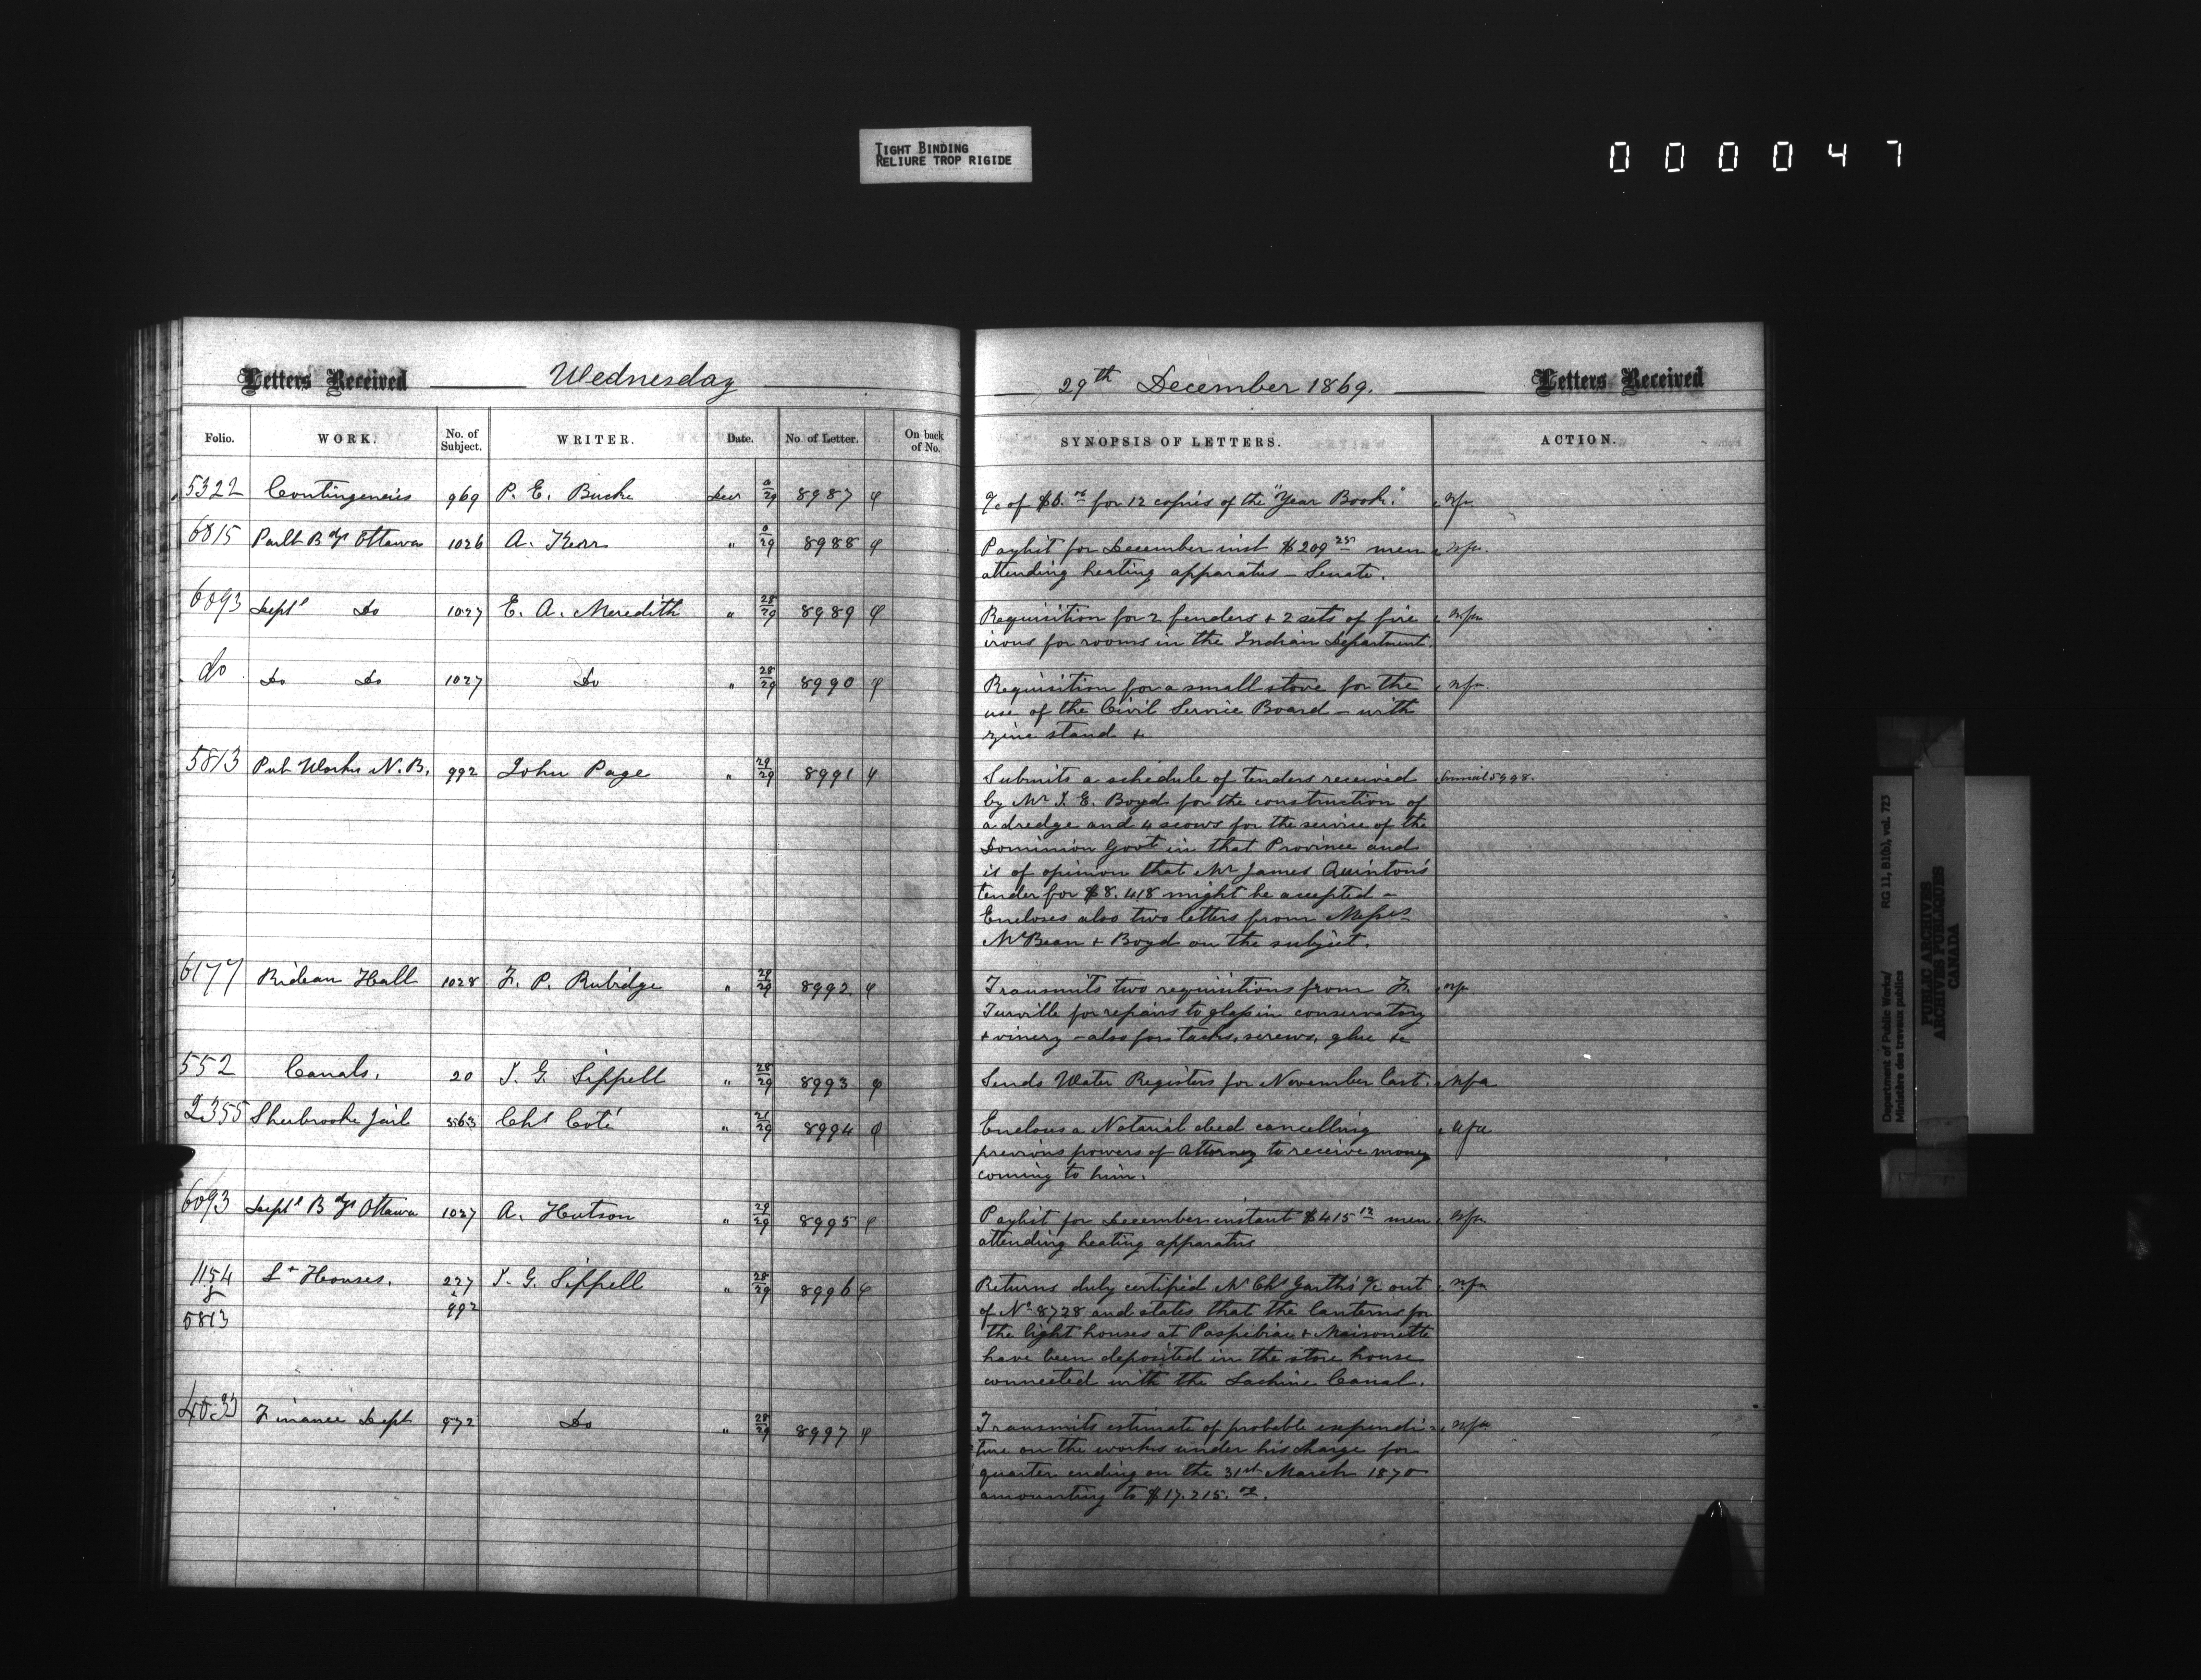 TIGHT BINDING
RELIURE TROP RIGIDE
000047
Letters Received Wednesday
29th December 1869. Letters Received
Folio. WORK. No. of Subject. WRITER. Date. No. of Letter. On back of No. SYNOPSIS OF LETTERS. ACTION.
5322 Contingencies 969 P. E. Bucke Decr 0/29 8987 φ
a/c of $6.00 for 12 copies of the "Year Book." nfa
6815 Parlt Bdgs Ottawa 1026 A. Kerr " 0/29 8988 φ
Paylist for December inst $209 25 men nfa.
attending heating apparatus - Senate.
6093 Deptl Do 1027 E. A. Meredith " 28/29 8989 φ
Requisition for 2 fenders & 2 sets of fire nfa
irons for rooms in the Indian Department.
do Do Do 1027 Do " 28/29 8990 φ
Requisition for a small stove for the nfa.
use of the Civil Service Board - with
zinc stand &
5813 Pub Works N.B. 992 John Page " 29/29 8991 φ
Submits a schedule of tenders received 5998.
by Mr J. E. Boyd for the construction of
a dredge and 4 scows for the service of the
Dominion Govt in that Province and
is of opinion that Mr James Quinton's
tender for $8.418 might be accepted -
Encloses also two letters from Messrs
McBean & Boyd on the subject.
6177 Rideau Hall 1028 F. P. Rubidge " 29/29 8992 φ
Transmits two requisitions from F. nfa
Turville for repairs to glass in conservatory
& vinery - also for tacks, screws, glue &c
552 Canals. 20 J. G. Sippell " 28/29 8993 φ
Sends Water Registers for November last. nfa
2355 Sherbrooke Jail 563 Chs Coté " 21/29 8994 φ
Encloses a Notarial deed cancelling nfa
previous powers of Attorney to receive money
coming to him.
6093 Deptl Bdgs Ottawa 1027 A. Hutson " 29/29 8995 φ
Paylist for December instant $415 12 men nfa
attending heating apparatus
1154 Lt Houses. 227 J. G. Sippell " 28/29 8996 φ
& &
5813 992
Returns duly certified Mr Chs Garth's a/c out nfa
of No 8728 and states that the lanterns for
the light houses at Paspebiac & Maisonette
have been deposited in the store house
connected with the Lachine Canal.
Finance Dept 972 Do " 28/29 8997 φ
Transmits estimate of probable expendi- nfa
ture on the works under his charge for
quarter ending on the 31st March 1870
amounting to $17.215.00.
Department of Public Works/ RG 11, B1(b), vol. 723
Ministère des travaux publics
PUBLIC ARCHIVES
ARCHIVES PUBLIQUES
CANADA